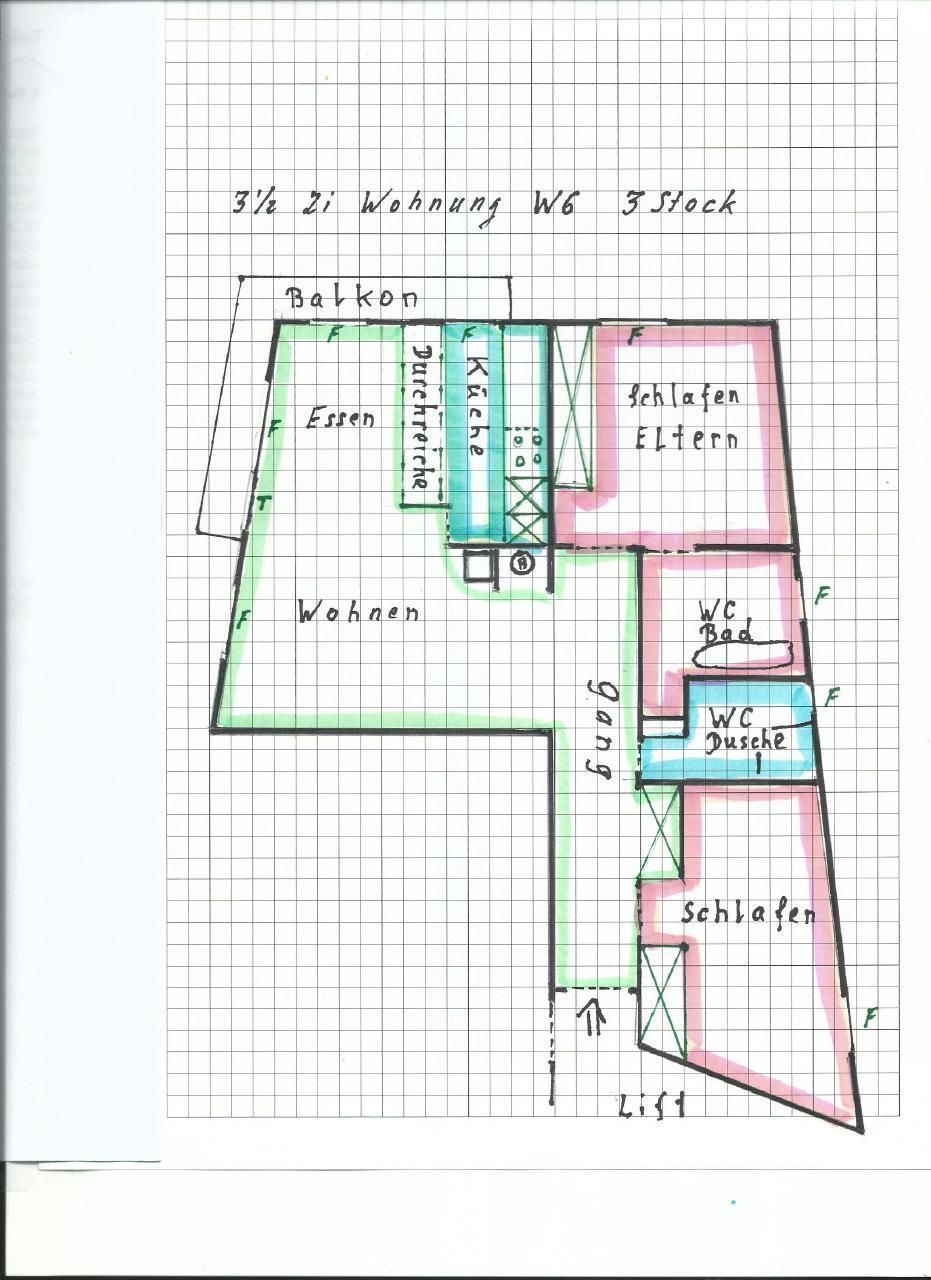 3½ Zi Wohnung W6 3 Stock
Balkon
F
F
F
Essen
Durchreiche
Küche
Schlafen
Eltern
F
T
F
Wohnen
WC
Bad
F
gang
WC
Dusche
F
Schlafen
F
Lift